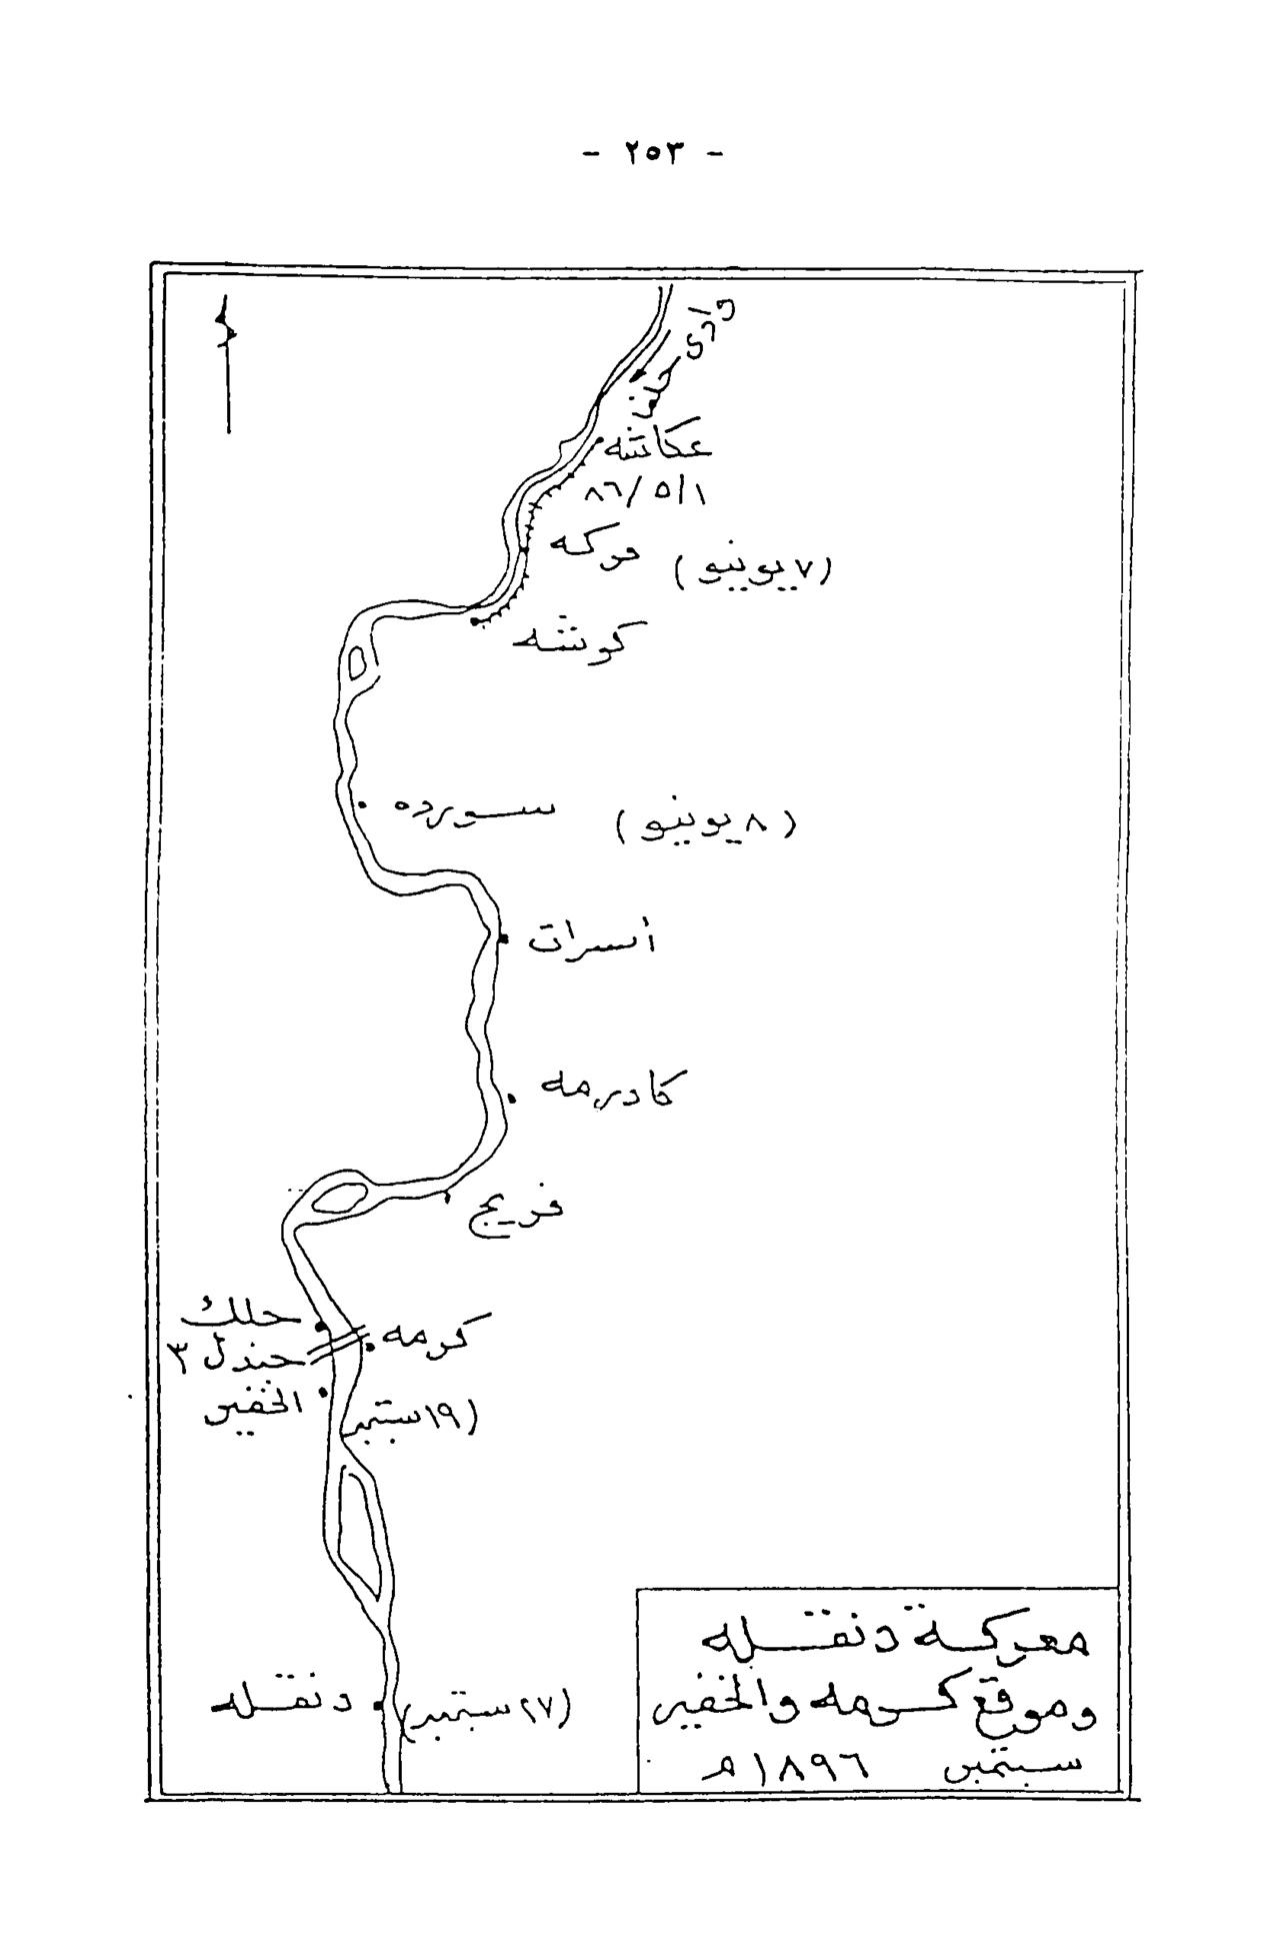 - ٢٥٣ -
وادي حلفا
عكاشه
٨٦/٥/١
فركه (٧ يونيو)
كوشه
سورده (٨ يونيو)
أسرات
كادرمه
فريج
حلك
كرمه
جندل ٣
الخفير
(١٩ سبتمبر
دنقله (٢٧ سبتمبر)
معركة دنقله
وموقع كرمه والخفير
سبتمبر ١٨٩٦م